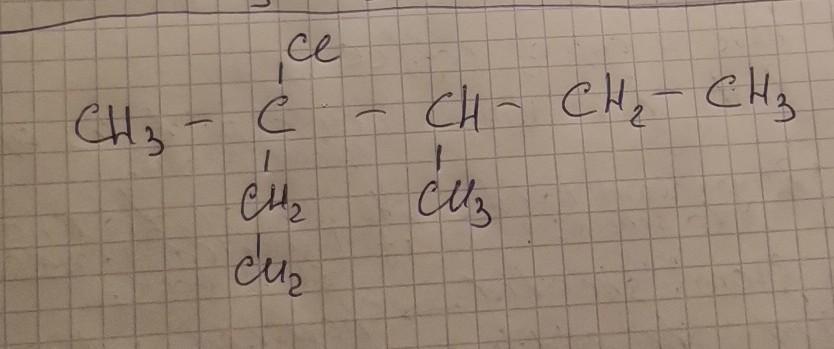 Cl
CH₃ - C - CH - CH₂ - CH₃
CH₂ CH₃
CH₂